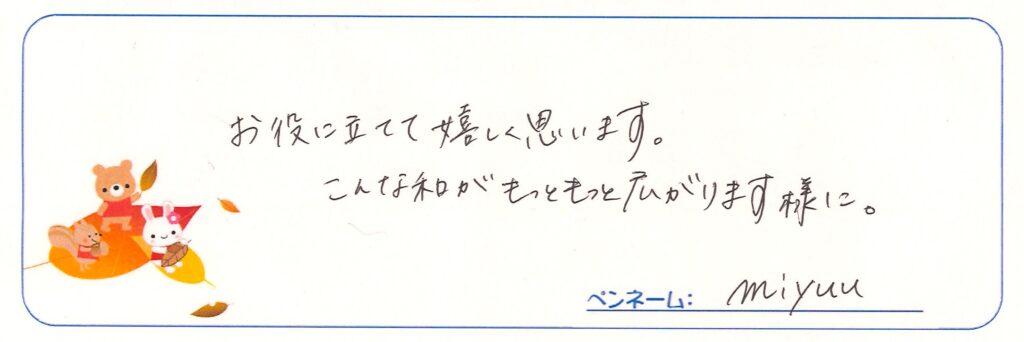 お役に立てて嬉しく思います。
こんな和がもっともっと広がります様に。
ペンネーム: miyuu